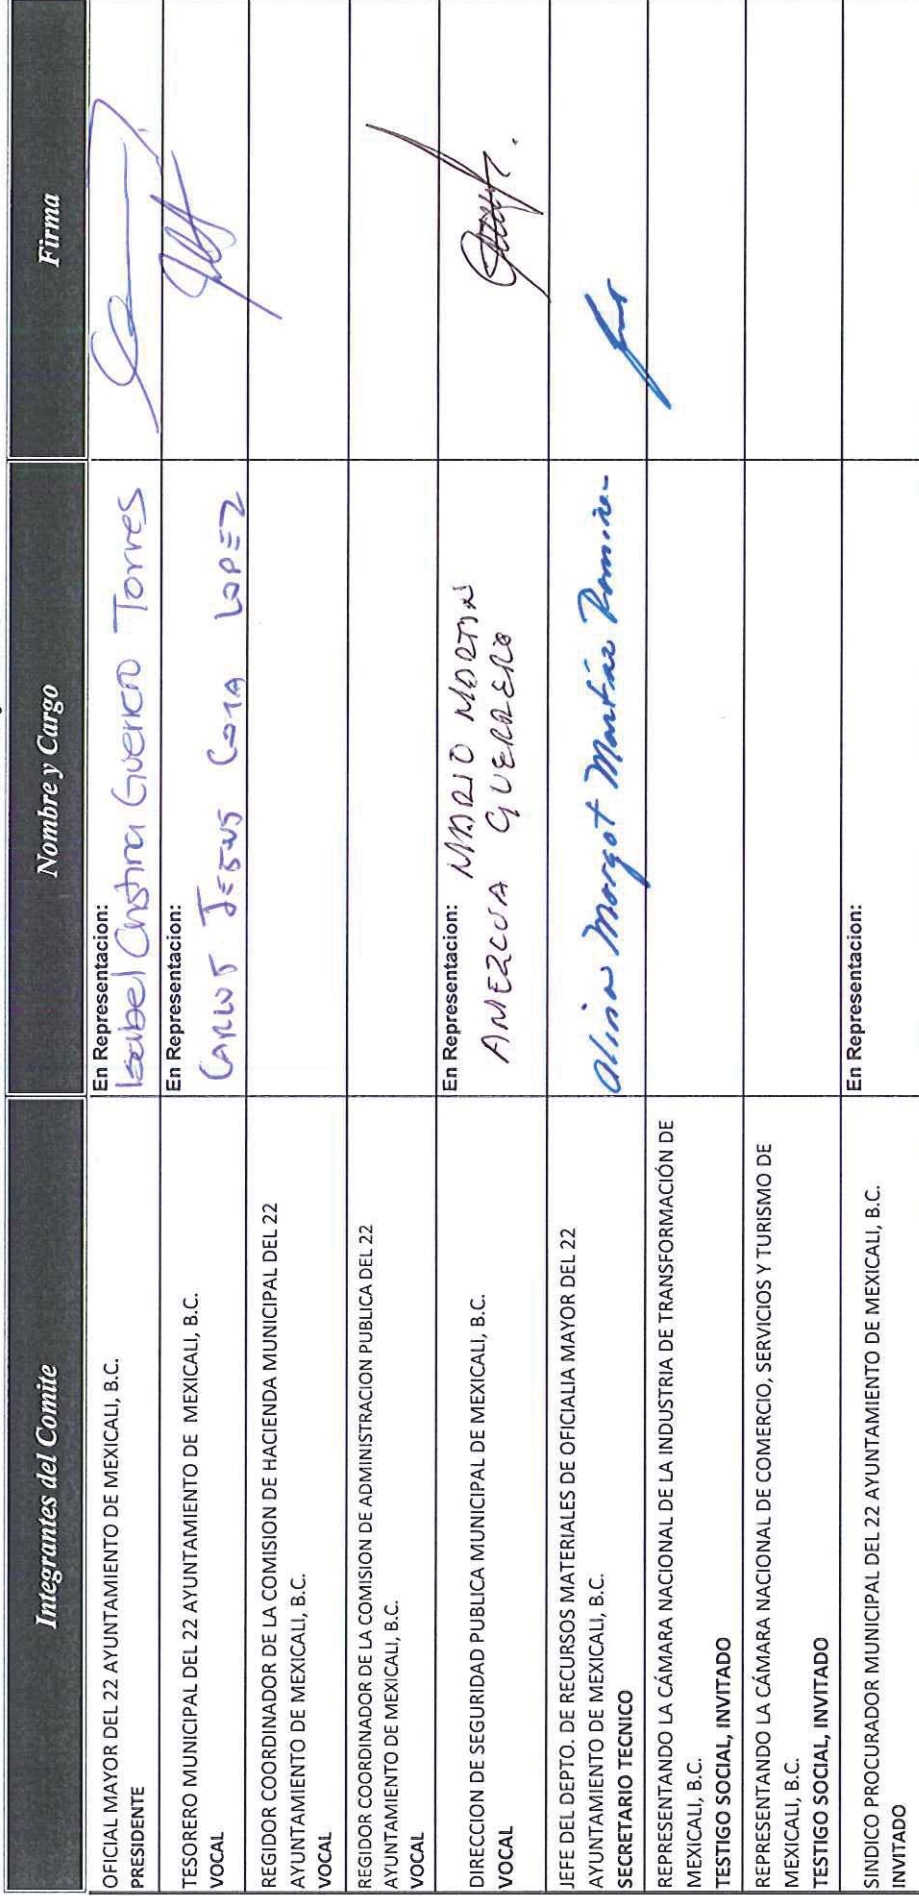 Integrantes del Comite
Nombre y Cargo
Firma
OFICIAL MAYOR DEL 22 AYUNTAMIENTO DE MEXICALI, B.C.
PRESIDENTE
En Representacion:
Isabel Cristina Guerrero Torres
TESORERO MUNICIPAL DEL 22 AYUNTAMIENTO DE MEXICALI, B.C.
VOCAL
En Representacion:
CARLOS JESUS COTA LOPEZ
REGIDOR COORDINADOR DE LA COMISION DE HACIENDA MUNICIPAL DEL 22
AYUNTAMIENTO DE MEXICALI, B.C.
VOCAL
REGIDOR COORDINADOR DE LA COMISION DE ADMINISTRACION PUBLICA DEL 22
AYUNTAMIENTO DE MEXICALI, B.C.
VOCAL
DIRECCION DE SEGURIDAD PUBLICA MUNICIPAL DE MEXICALI, B.C.
VOCAL
En Representacion: MARIO MARTIN
AMEZCUA GUERRERO
JEFE DEL DEPTO. DE RECURSOS MATERIALES DE OFICIALIA MAYOR DEL 22
AYUNTAMIENTO DE MEXICALI, B.C.
SECRETARIO TECNICO
Alina Margot Martínez Ramírez
REPRESENTANDO LA CÁMARA NACIONAL DE LA INDUSTRIA DE TRANSFORMACIÓN DE
MEXICALI, B.C.
TESTIGO SOCIAL, INVITADO
REPRESENTANDO LA CÁMARA NACIONAL DE COMERCIO, SERVICIOS Y TURISMO DE
MEXICALI, B.C.
TESTIGO SOCIAL, INVITADO
SINDICO PROCURADOR MUNICIPAL DEL 22 AYUNTAMIENTO DE MEXICALI, B.C.
INVITADO
En Representacion: